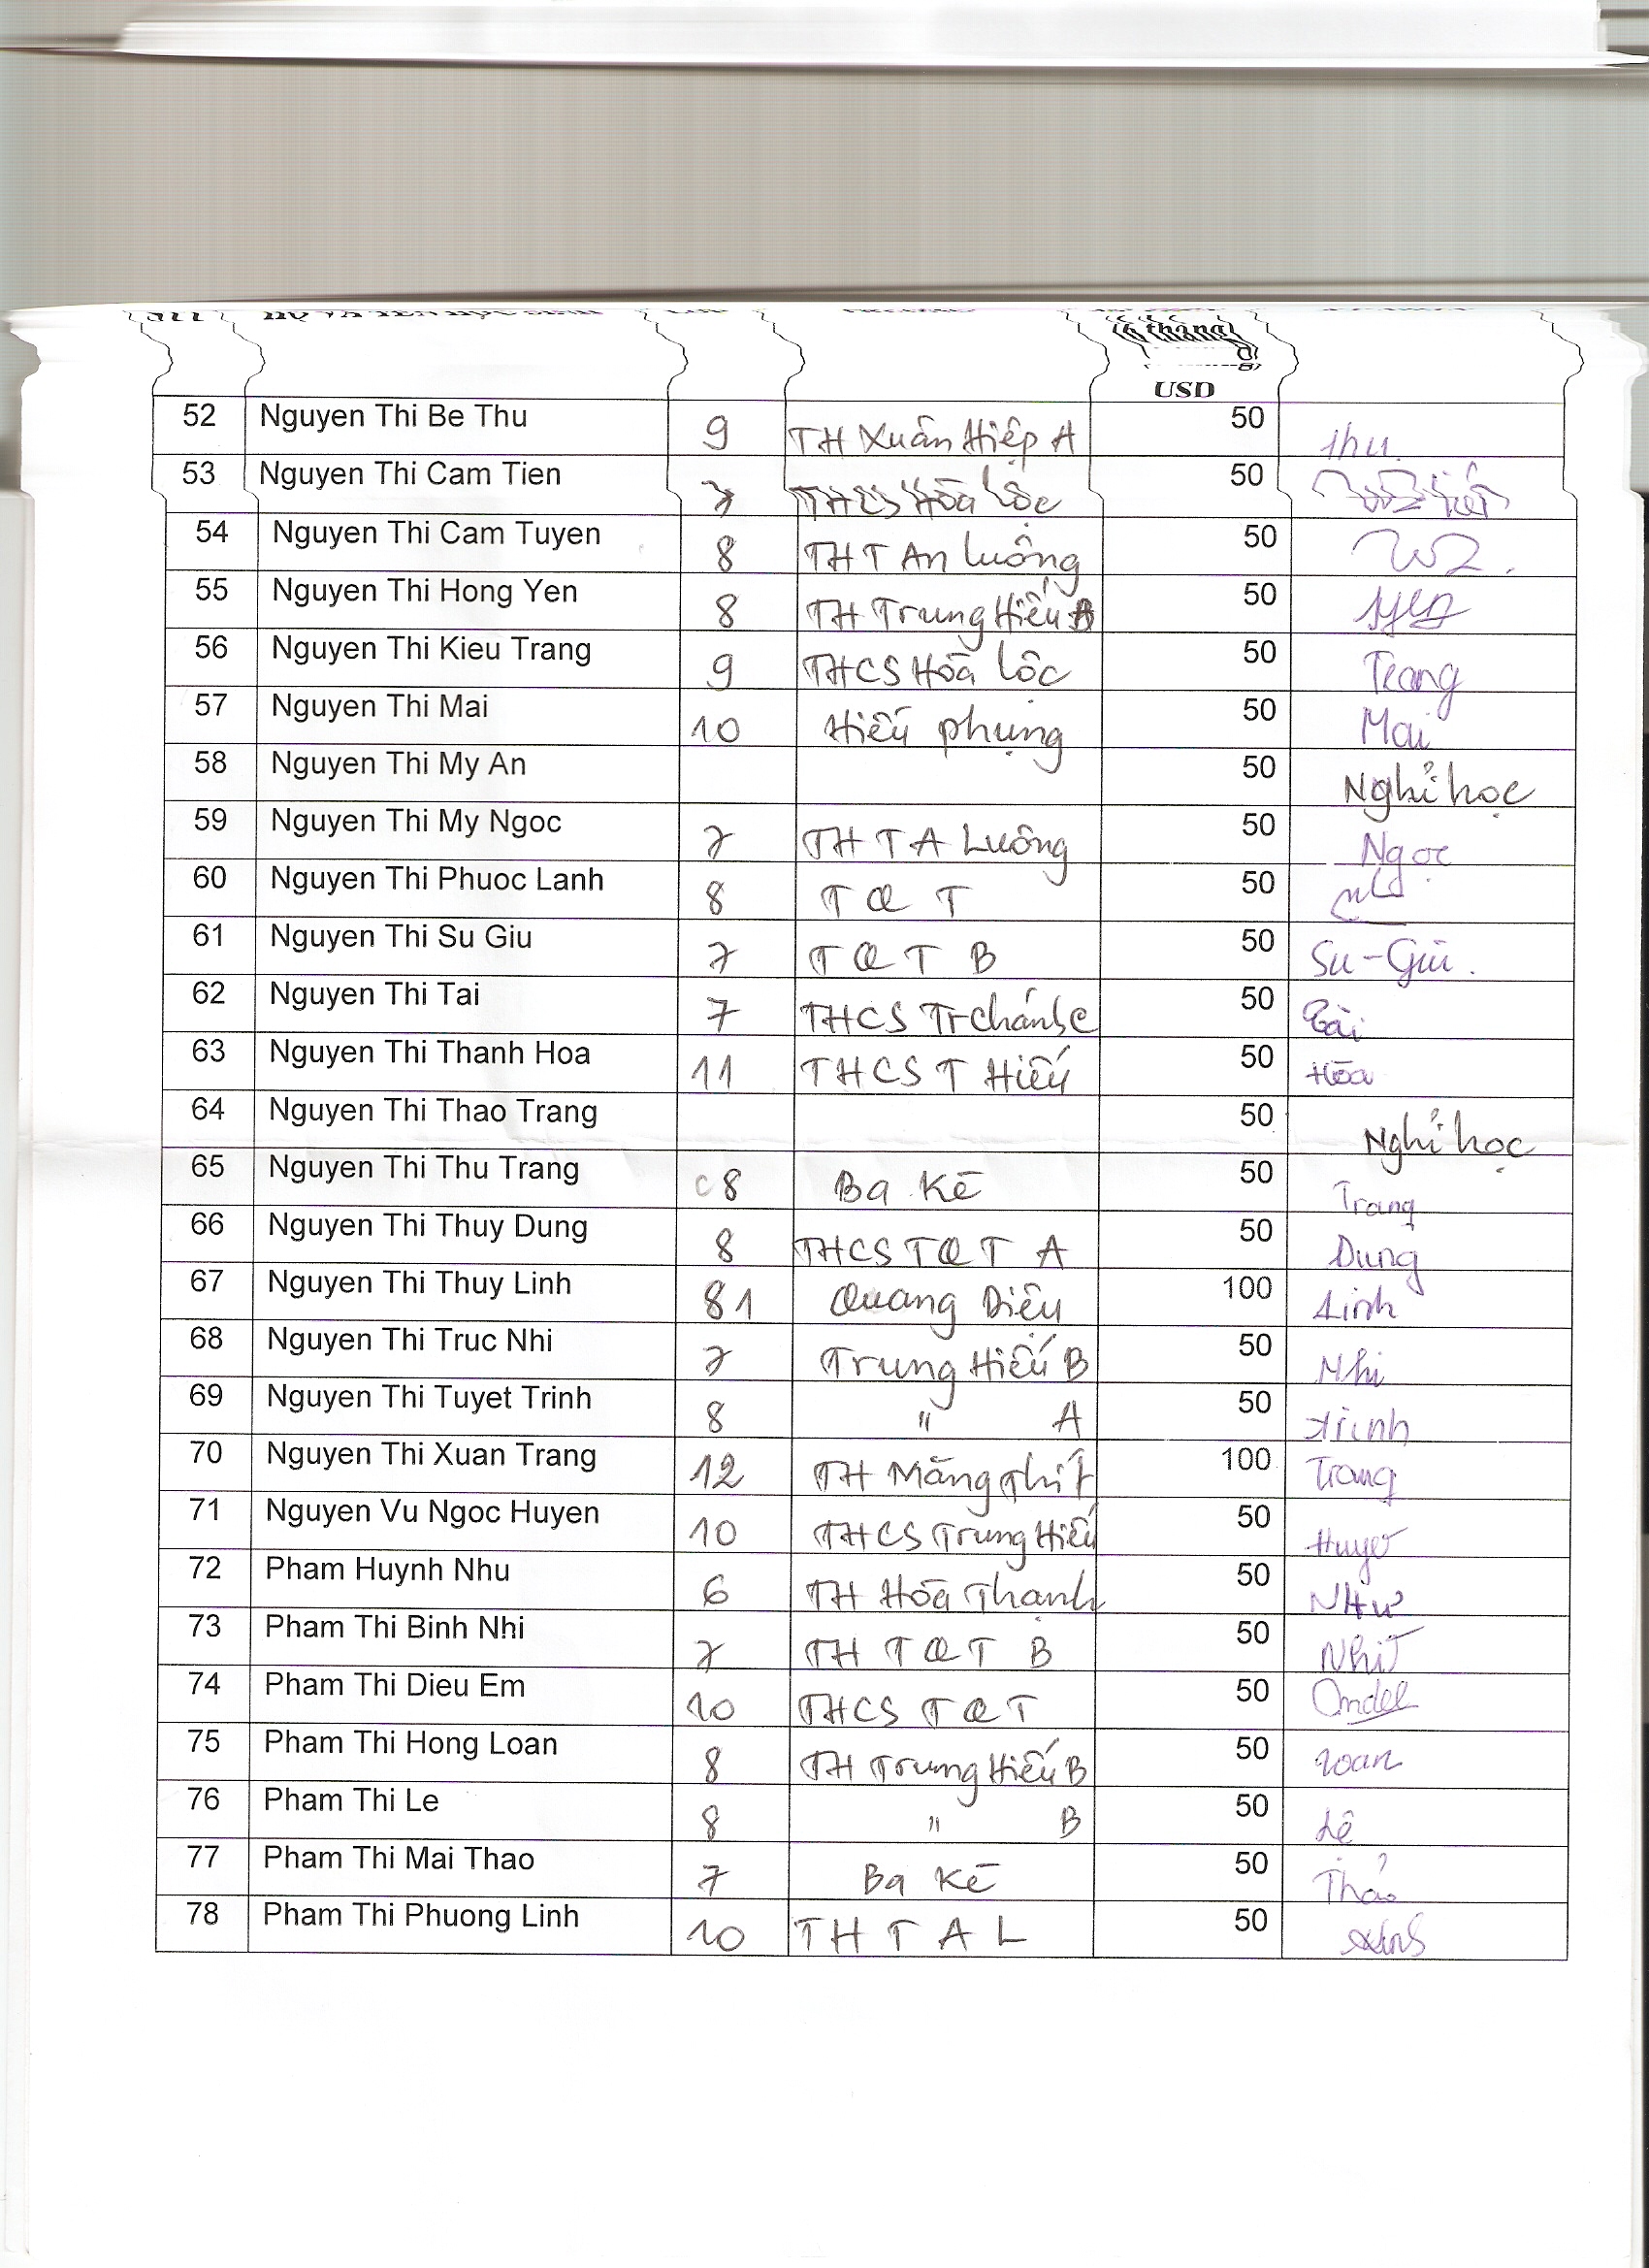 (6 tháng)
USD
52 Nguyen Thi Be Thu 9 TH Xuân Hiệp A 50 Thu
53 Nguyen Thi Cam Tien 7 THCS Hòa Lộc 50
54 Nguyen Thi Cam Tuyen 8 THT An Luông 50
55 Nguyen Thi Hong Yen 8 TH Trung Hiếu B 50 Yen
56 Nguyen Thi Kieu Trang 9 THCS Hòa Lộc 50 Trang
57 Nguyen Thi Mai 10 Hiếu phụng 50 Mai
58 Nguyen Thi My An 50 Nghỉ học
59 Nguyen Thi My Ngoc 7 TH T A Luông 50 Ngọc
60 Nguyen Thi Phuoc Lanh 8 T Q T 50
61 Nguyen Thi Su Giu 7 T Q T B 50 Su-Giu.
62 Nguyen Thi Tai 7 THCS Tr chánh C 50 Tài
63 Nguyen Thi Thanh Hoa 11 THCS T Hiếu 50 Hòa
64 Nguyen Thi Thao Trang 50 Nghỉ học
65 Nguyen Thi Thu Trang 8 Ba Kè 50 Trang
66 Nguyen Thi Thuy Dung 8 THCS T Q T A 50 Dung
67 Nguyen Thi Thuy Linh 81 Quang Diêu 100 Linh
68 Nguyen Thi Truc Nhi 7 Trung Hiếu B 50 Nhi
69 Nguyen Thi Tuyet Trinh 8 " A 50 Trinh
70 Nguyen Thi Xuan Trang 12 TH Măng Thít 100 Trang
71 Nguyen Vu Ngoc Huyen 10 THCS Trung Hiếu 50 Huyen
72 Pham Huynh Nhu 6 TH Hòa Thạnh 50 Như
73 Pham Thi Binh Nhi 7 TH T Q T B 50 Nhi
74 Pham Thi Dieu Em 10 THCS T Q T 50
75 Pham Thi Hong Loan 8 TH Trung Hiếu B 50 Loan
76 Pham Thi Le 8 " B 50 Lê
77 Pham Thi Mai Thao 7 Ba Kè 50 Thảo
78 Pham Thi Phuong Linh 10 T H T A L 50 Linh